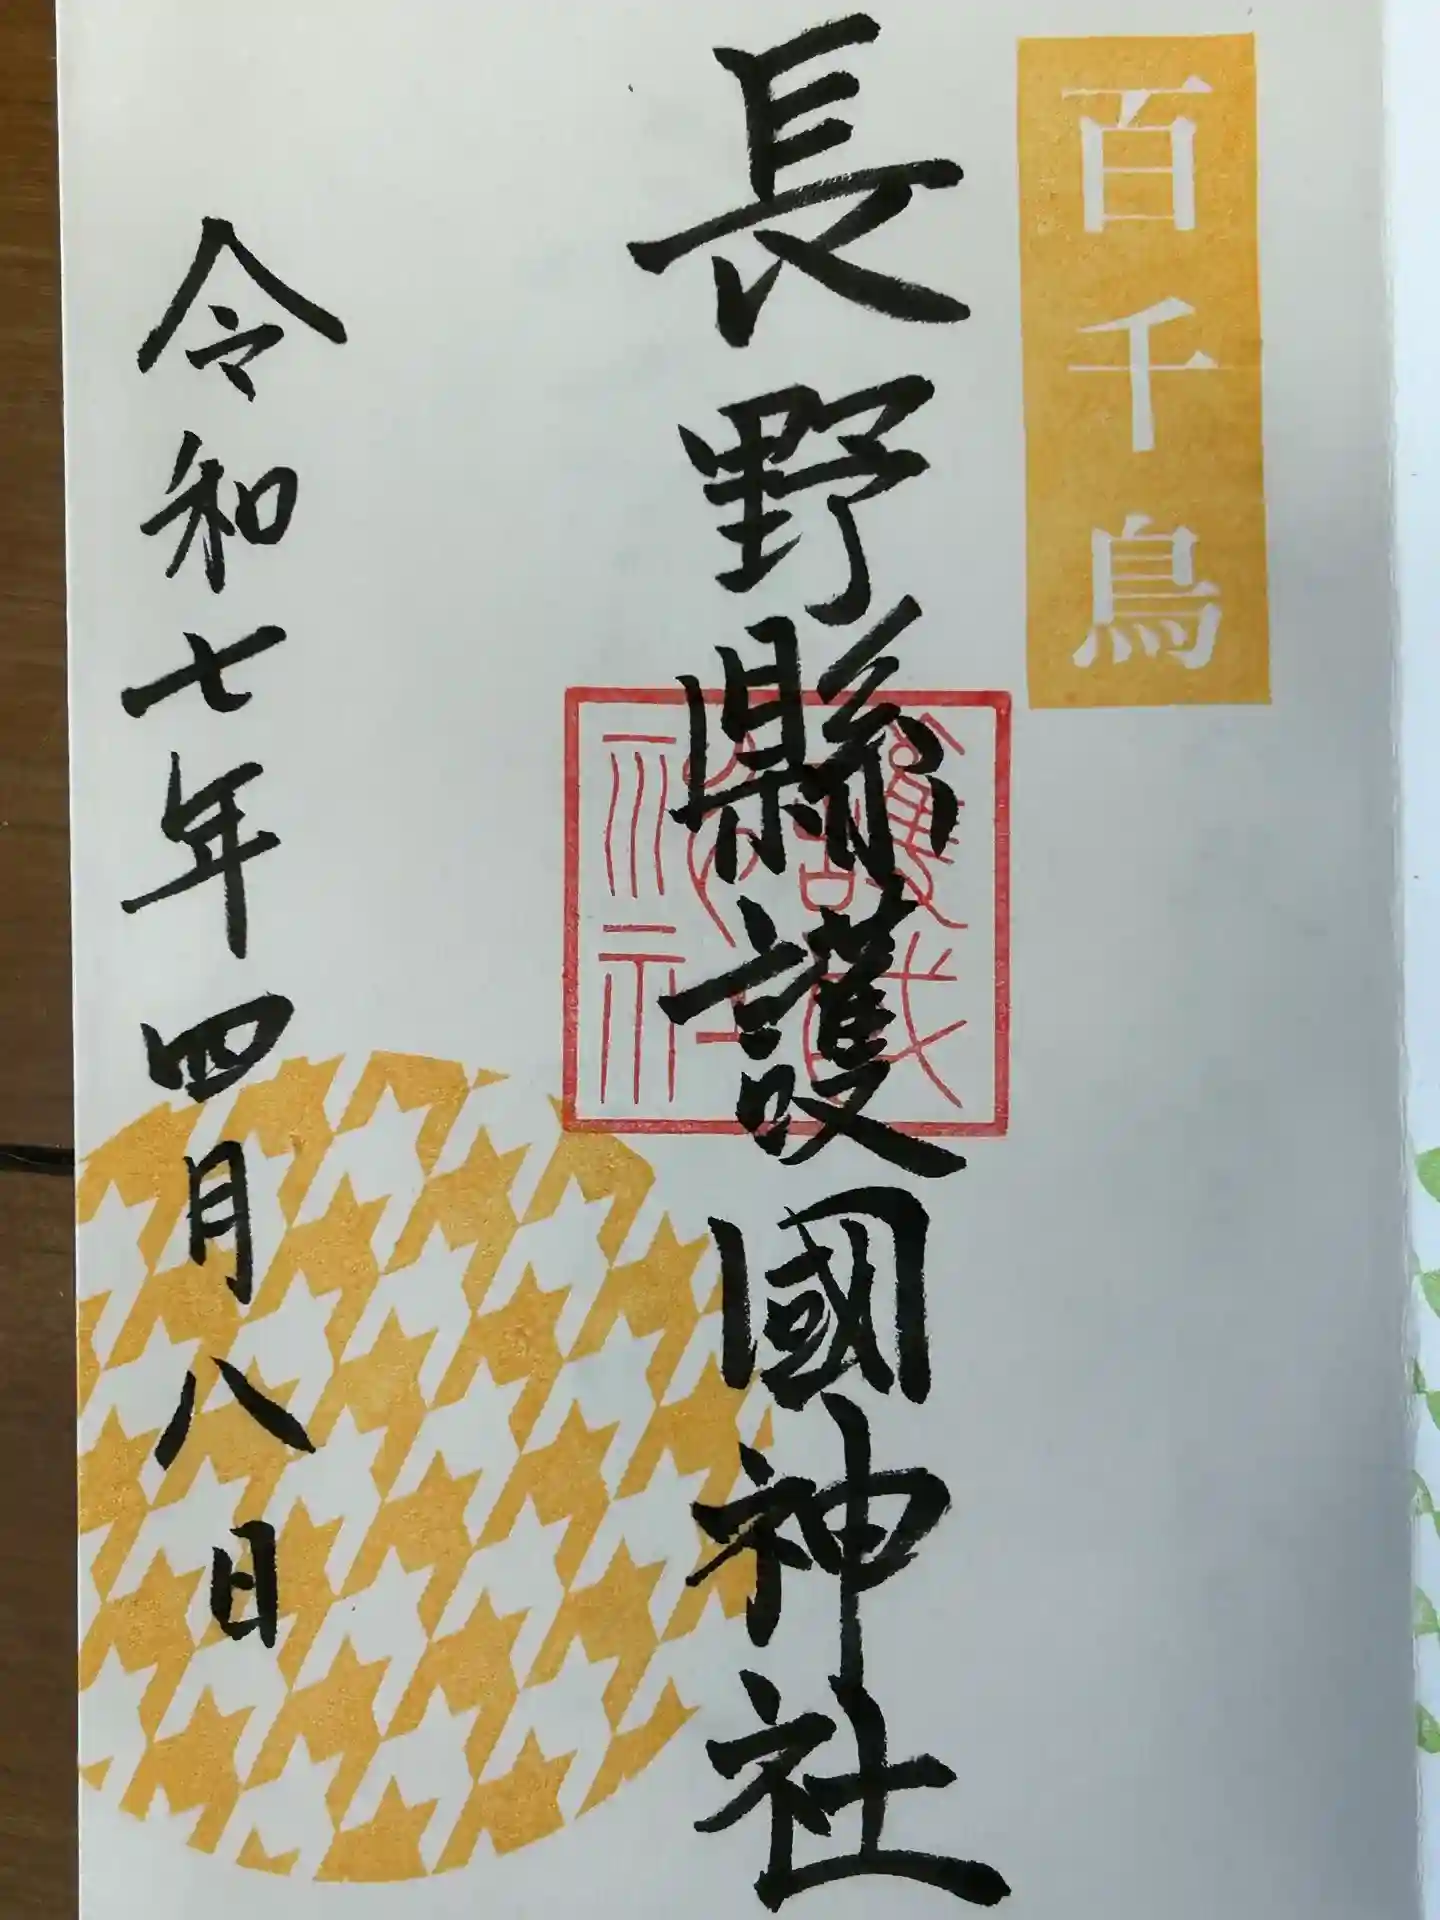 百千鳥
長野縣護國神社
護國
神社
令和七年四月八日